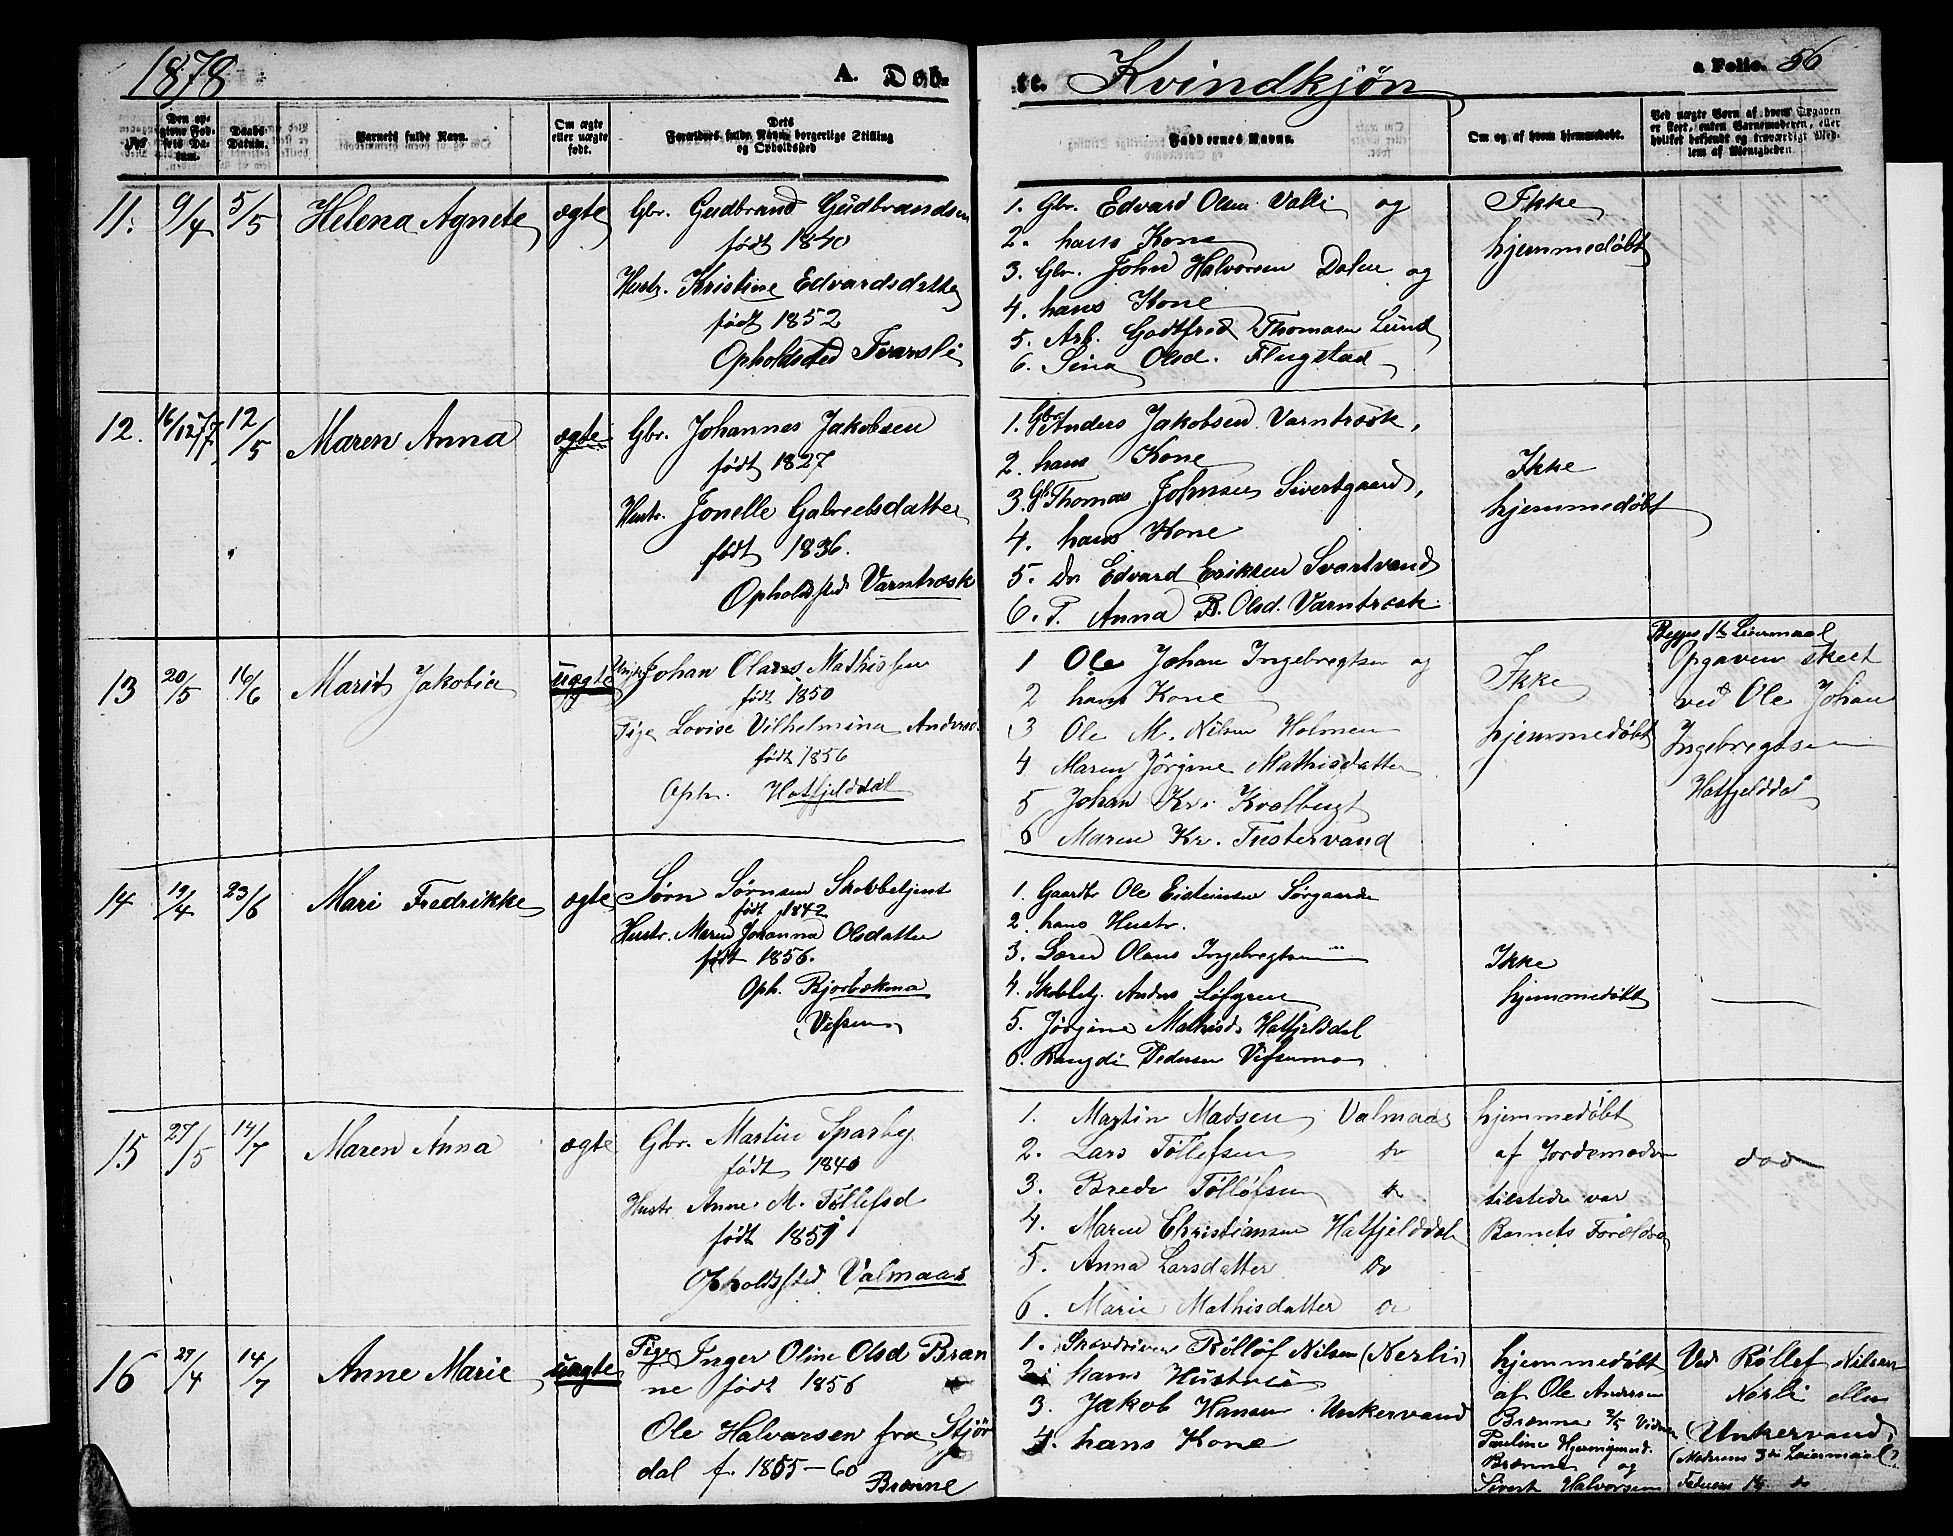 1878
A. Dåb-
te. Kvindkjøn
a Folio. 56
Den op-
givne Fød-
sels Da-
tum.
Daabs-
Datum.
Barnets fulde Navn.
Om ægte
eller uægte
født.
Dets
Forældres fulde Navn, borgerlige Stilling
og Opholdssted
Faddernes Navne.
Om og af hvem hjemmedøbt.
Ved uægte Børn af hvem Opgaven
er skeet, enten Barnemoderen, eller
hvilket bekjendt og troværdigt Med-
lem af Menigheden.
11. 9/4 5/5 Helena Agnete ægte
Gbr. Gudbrand Gudbrandsen
født 1840
Hustr. Kristine Edvardsdatter
født 1852
Opholdsted Tvarsli
1. Gbr. Edvard Olsen Valli og
2. hans Kone
3. Gbr. John Halvorsen Dalen og
4. hans Kone
5. Arb. Godtfred Thomasen Lund
6. Sina Olsd. Flugstad
Ikke
hjemmedøbt
12. 16/12 77 12/5 Maren Anna ægte
Gbr. Johannes Jakobsen
født 1827
Hustr. Jonelle Gabrielsdatter
født 1836.
Opholdsted Varntræsk
1. Gbr. Anders Jakobsen Varntræsk,
2. hans Kone
3. Gb. Thomas Johnsen Sivertgaard,
4. hans Kone
5. Do Edvard Eriksen Svartvand
6. P. Anna B. Olsd. Varntræsk.
Ikke
hjemmedøbt
13 20/5 16/6 Marit Jakobia uægte
Ungk. Johan Olaus Mathissen
født 1850
Pige Lovise Vilhelmina Andersd.
født 1856
Oph. Hatfjelddal
1 Ole Johan Ingebregtsen og
2 hans Kone
3 Ole M. Nilsen Holmen
4 Maren Jørgine Mathisdatter
5 Johan Kr. Kvalbugt
6 Maren Kr. Fustervand
Ikke
hjemmedøbt
Begges 1te Leiermaal
Opgaven skeet
ved Ole Johan
Ingebregtsen
Hatfjelddal
14 19/4 23/6 Mari Fredrikke ægte
Sørn Sørnsen Skobbetjent
født 1842
Hustr. Maren Johanna Olsdatter
født 1856.
Oph. Bjorbækmo
Vefsen
1. Gaardbr Ole Eisteinsen Sørgaarde
2. hans Hustr.
3. Olaus Ingebregtsen
4. Skobbetj. Anders Løfgren
5. Jørgine Mathisd. Hatfjelddal
6. Rangdi Pedersen Vefsenmo
Ikke
hjemmedøbt
15 27/5 14/7 Maren Anna ægte
Gbr. Martin Sparby
født 1840
Hustr Anne M. Tøllefsd
født 1851
Opholdsted Valmaas
1. Martin Madsen Valmaas
2. Lars Tøllefsen Do
3. Brede Tølløfsen Do
4. Maren Christiansen Hatfjelddal
5. Anna Larsdatter Do
6. Marie Mathisdatter Do
hjemmedøbt
af Jordemoderen
tilstede var
Barnets Forældre
16 29/4 14/7 Anne Marie uægte
Pige Inger Oline Olsd Bræn
ne født 1856
Ole Halvarsen fra Stjør
dal f. 1855-60
Brænne
1. Rølløf Nilsen (Nerli)
2. hans Hustru
3. Jakob Hansen Unkervand
4. hans Kone
hjemmedøbt
af Ole Andersen
Brænne 3/5 Vidner
Pauline
Brænne og
Sivert Halvorsen
Ved Røllef Nilsen
Nerli eller
(Unkervand)
(Moderens 3die Leiermaal)
Faderens 1te do